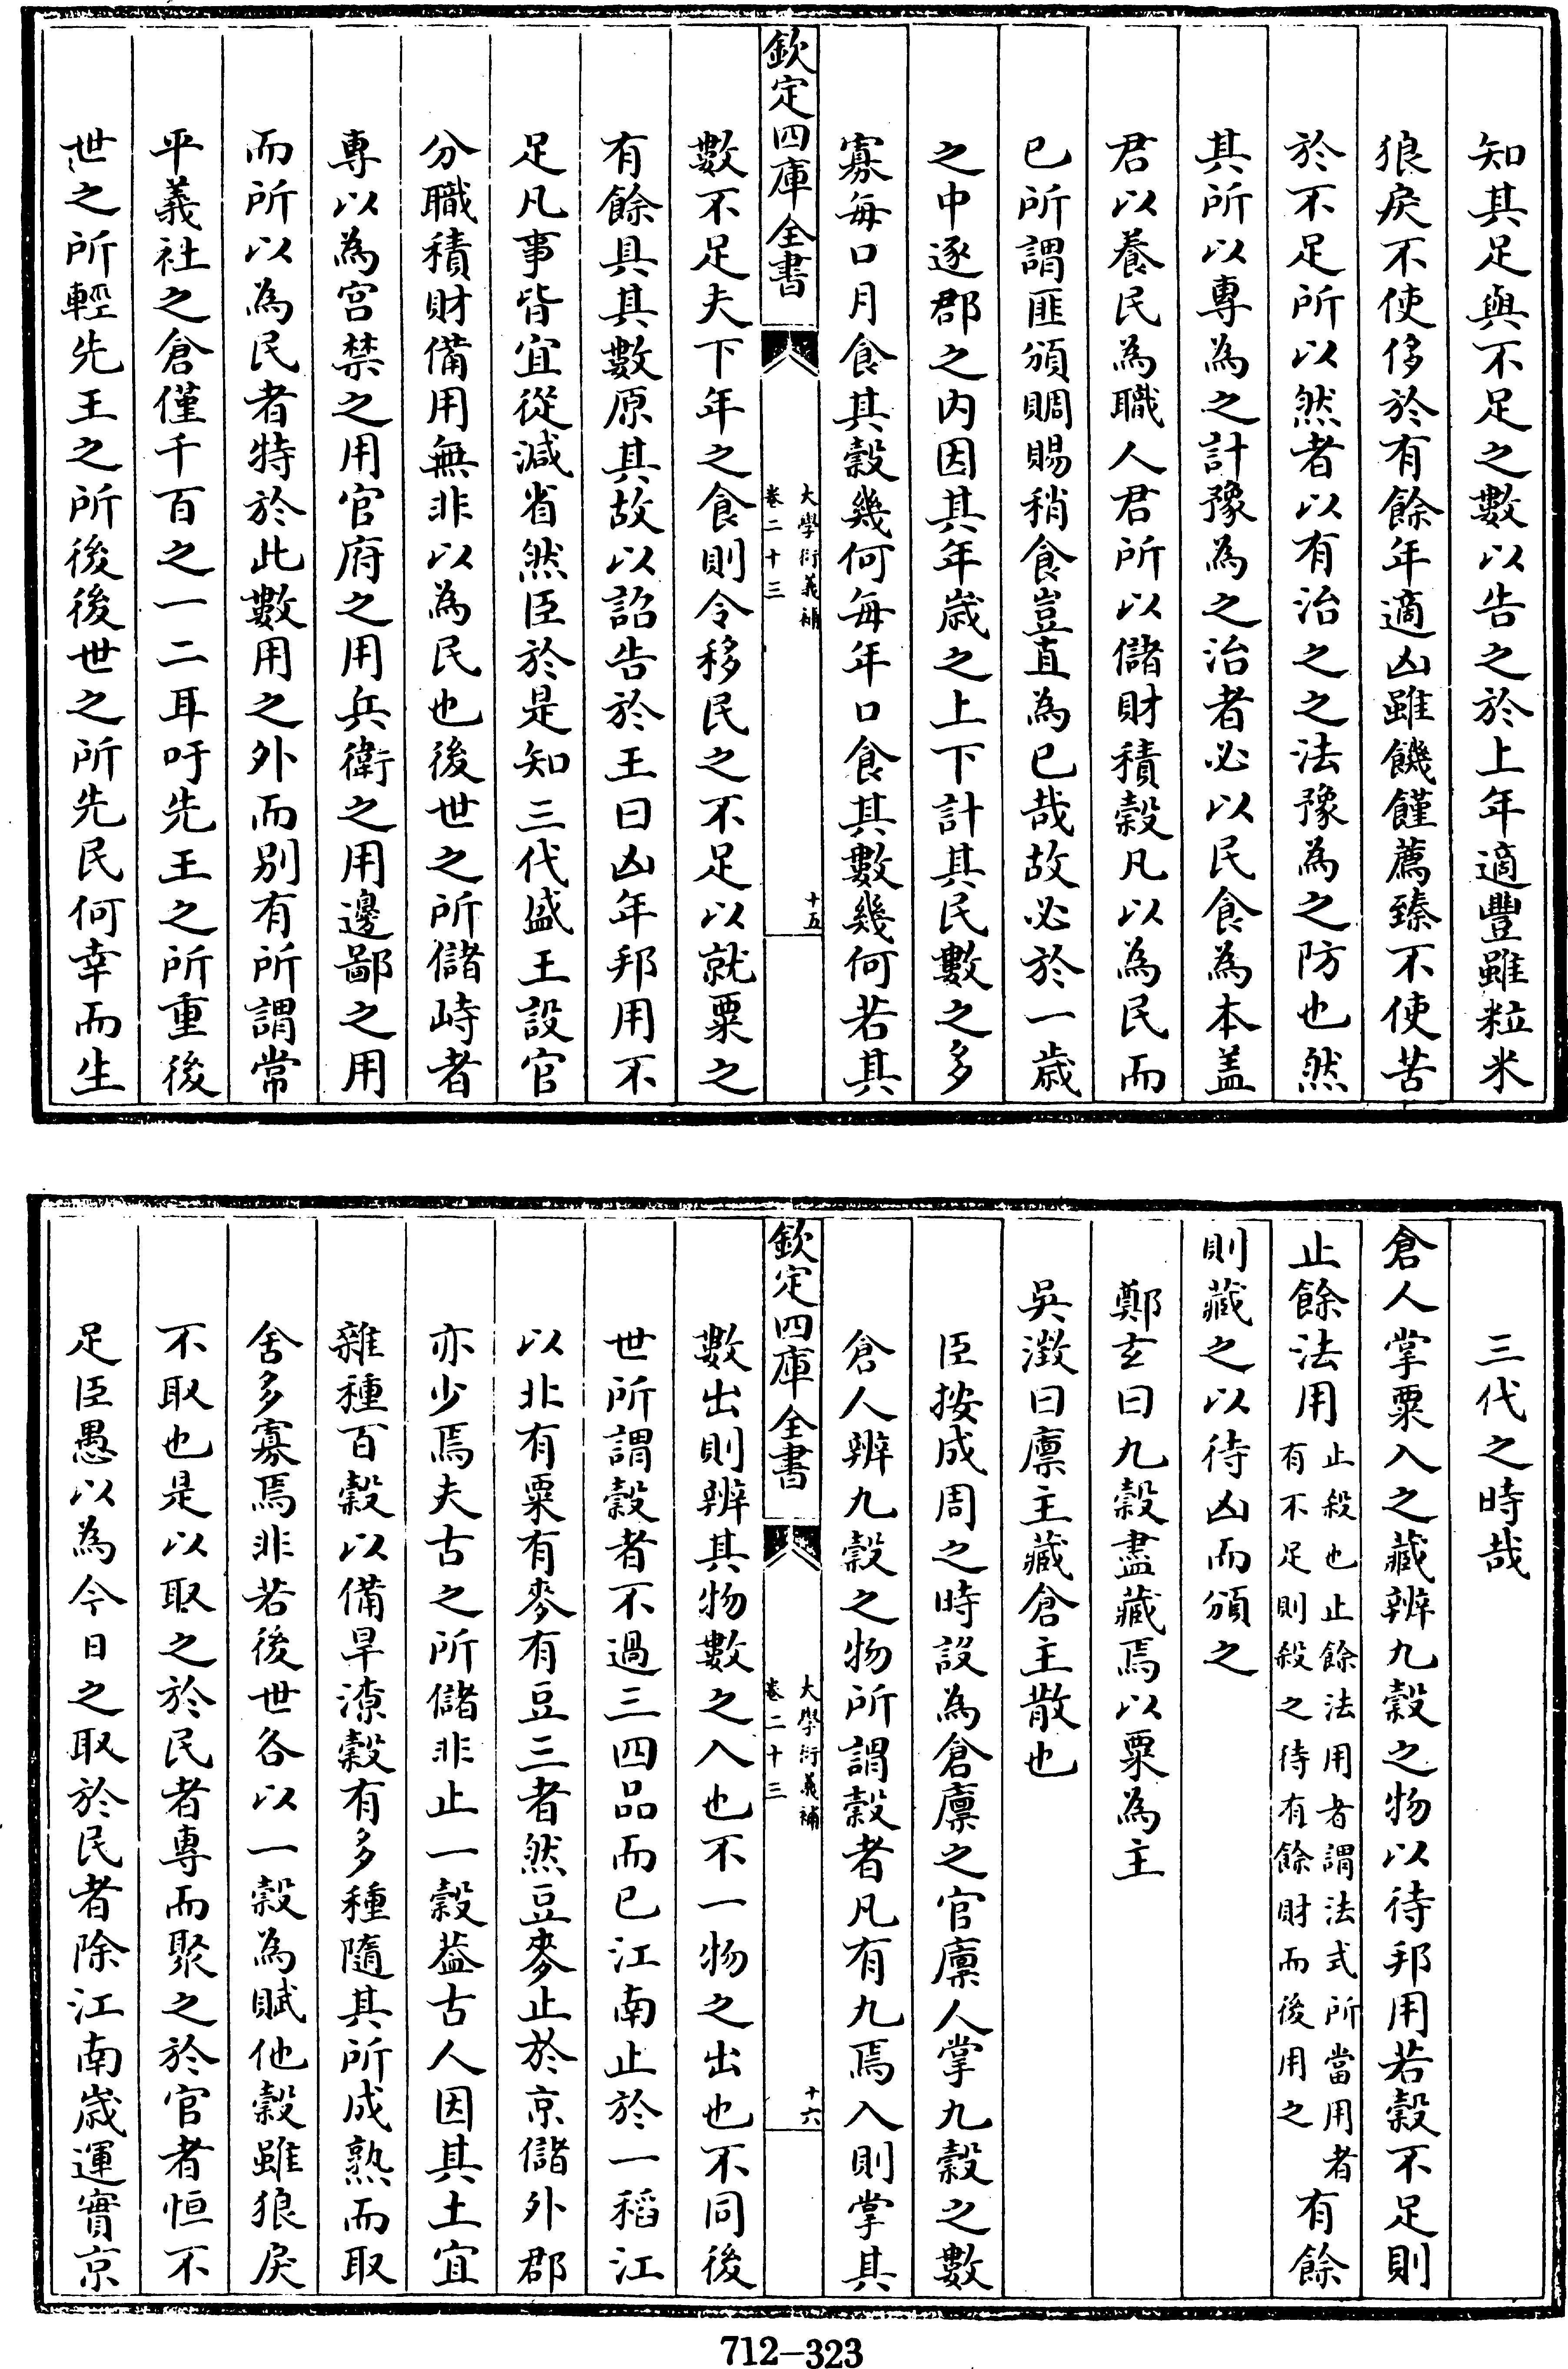 知其足與不足之數以告之於上年適豐雖粒米
狼戾不使侈於有餘年適凶雖饑饉薦臻不使苦
於不足所以然者以有治之之法豫為之防也然
其所以專為之計豫為之治者必以民食為本盖
君以養民為職人君所以儲財積穀凡以為民而
已所謂匪頒賙賜稍食豈直為已哉故必於一歲
之中逐郡之内因其年歲之上下計其民數之多
寡每口月食其穀幾何每年口食其數幾何若其
欽定四庫全書
大學衍義補
卷二十三
十五
數不足夫下年之食則令移民之不足以就粟之
有餘具其數原其故以詔告於王曰凶年邦用不
足凡事皆宜從減省然臣於是知三代盛王設官
分職積財備用無非以為民也後世之所儲峙者
專以為宮禁之用官府之用兵衛之用邊鄙之用
而所以為民者特於此數用之外而别有所謂常
平義社之倉僅千百之一二耳吁先王之所重後
世之所輕先王之所後後世之所先民何幸而生
三代之時哉
倉人掌粟入之藏辨九穀之物以待邦用若穀不足則
止餘法用止殺也止餘法用者謂法式所當用者有不足則殺之待有餘財而後用之有餘
則藏之以待凶而頒之
鄭玄曰九穀盡藏焉以粟為主
吳澂曰廪主藏倉主散也
臣按成周之時設為倉廪之官廪人掌九穀之數
倉人辨九穀之物所謂穀者凡有九焉入則掌其
欽定四庫全書
大學衍義補
卷二十三
十六
數出則辨其物數之入也不一物之出也不同後
世所謂穀者不過三四品而已江南止於一稻江
以北有粟有麥有豆三者然豆麥止於京儲外郡
亦少焉夫古之所儲非止一穀葢古人因其土宜
雜種百穀以備旱潦穀有多種隨其所成熟而取
舍多寡焉非若後世各以一穀為賦他穀雖狼戾
不取也是以取之於民者專而聚之於官者恒不
足臣愚以為今日之取於民者除江南歲運實京
712-323